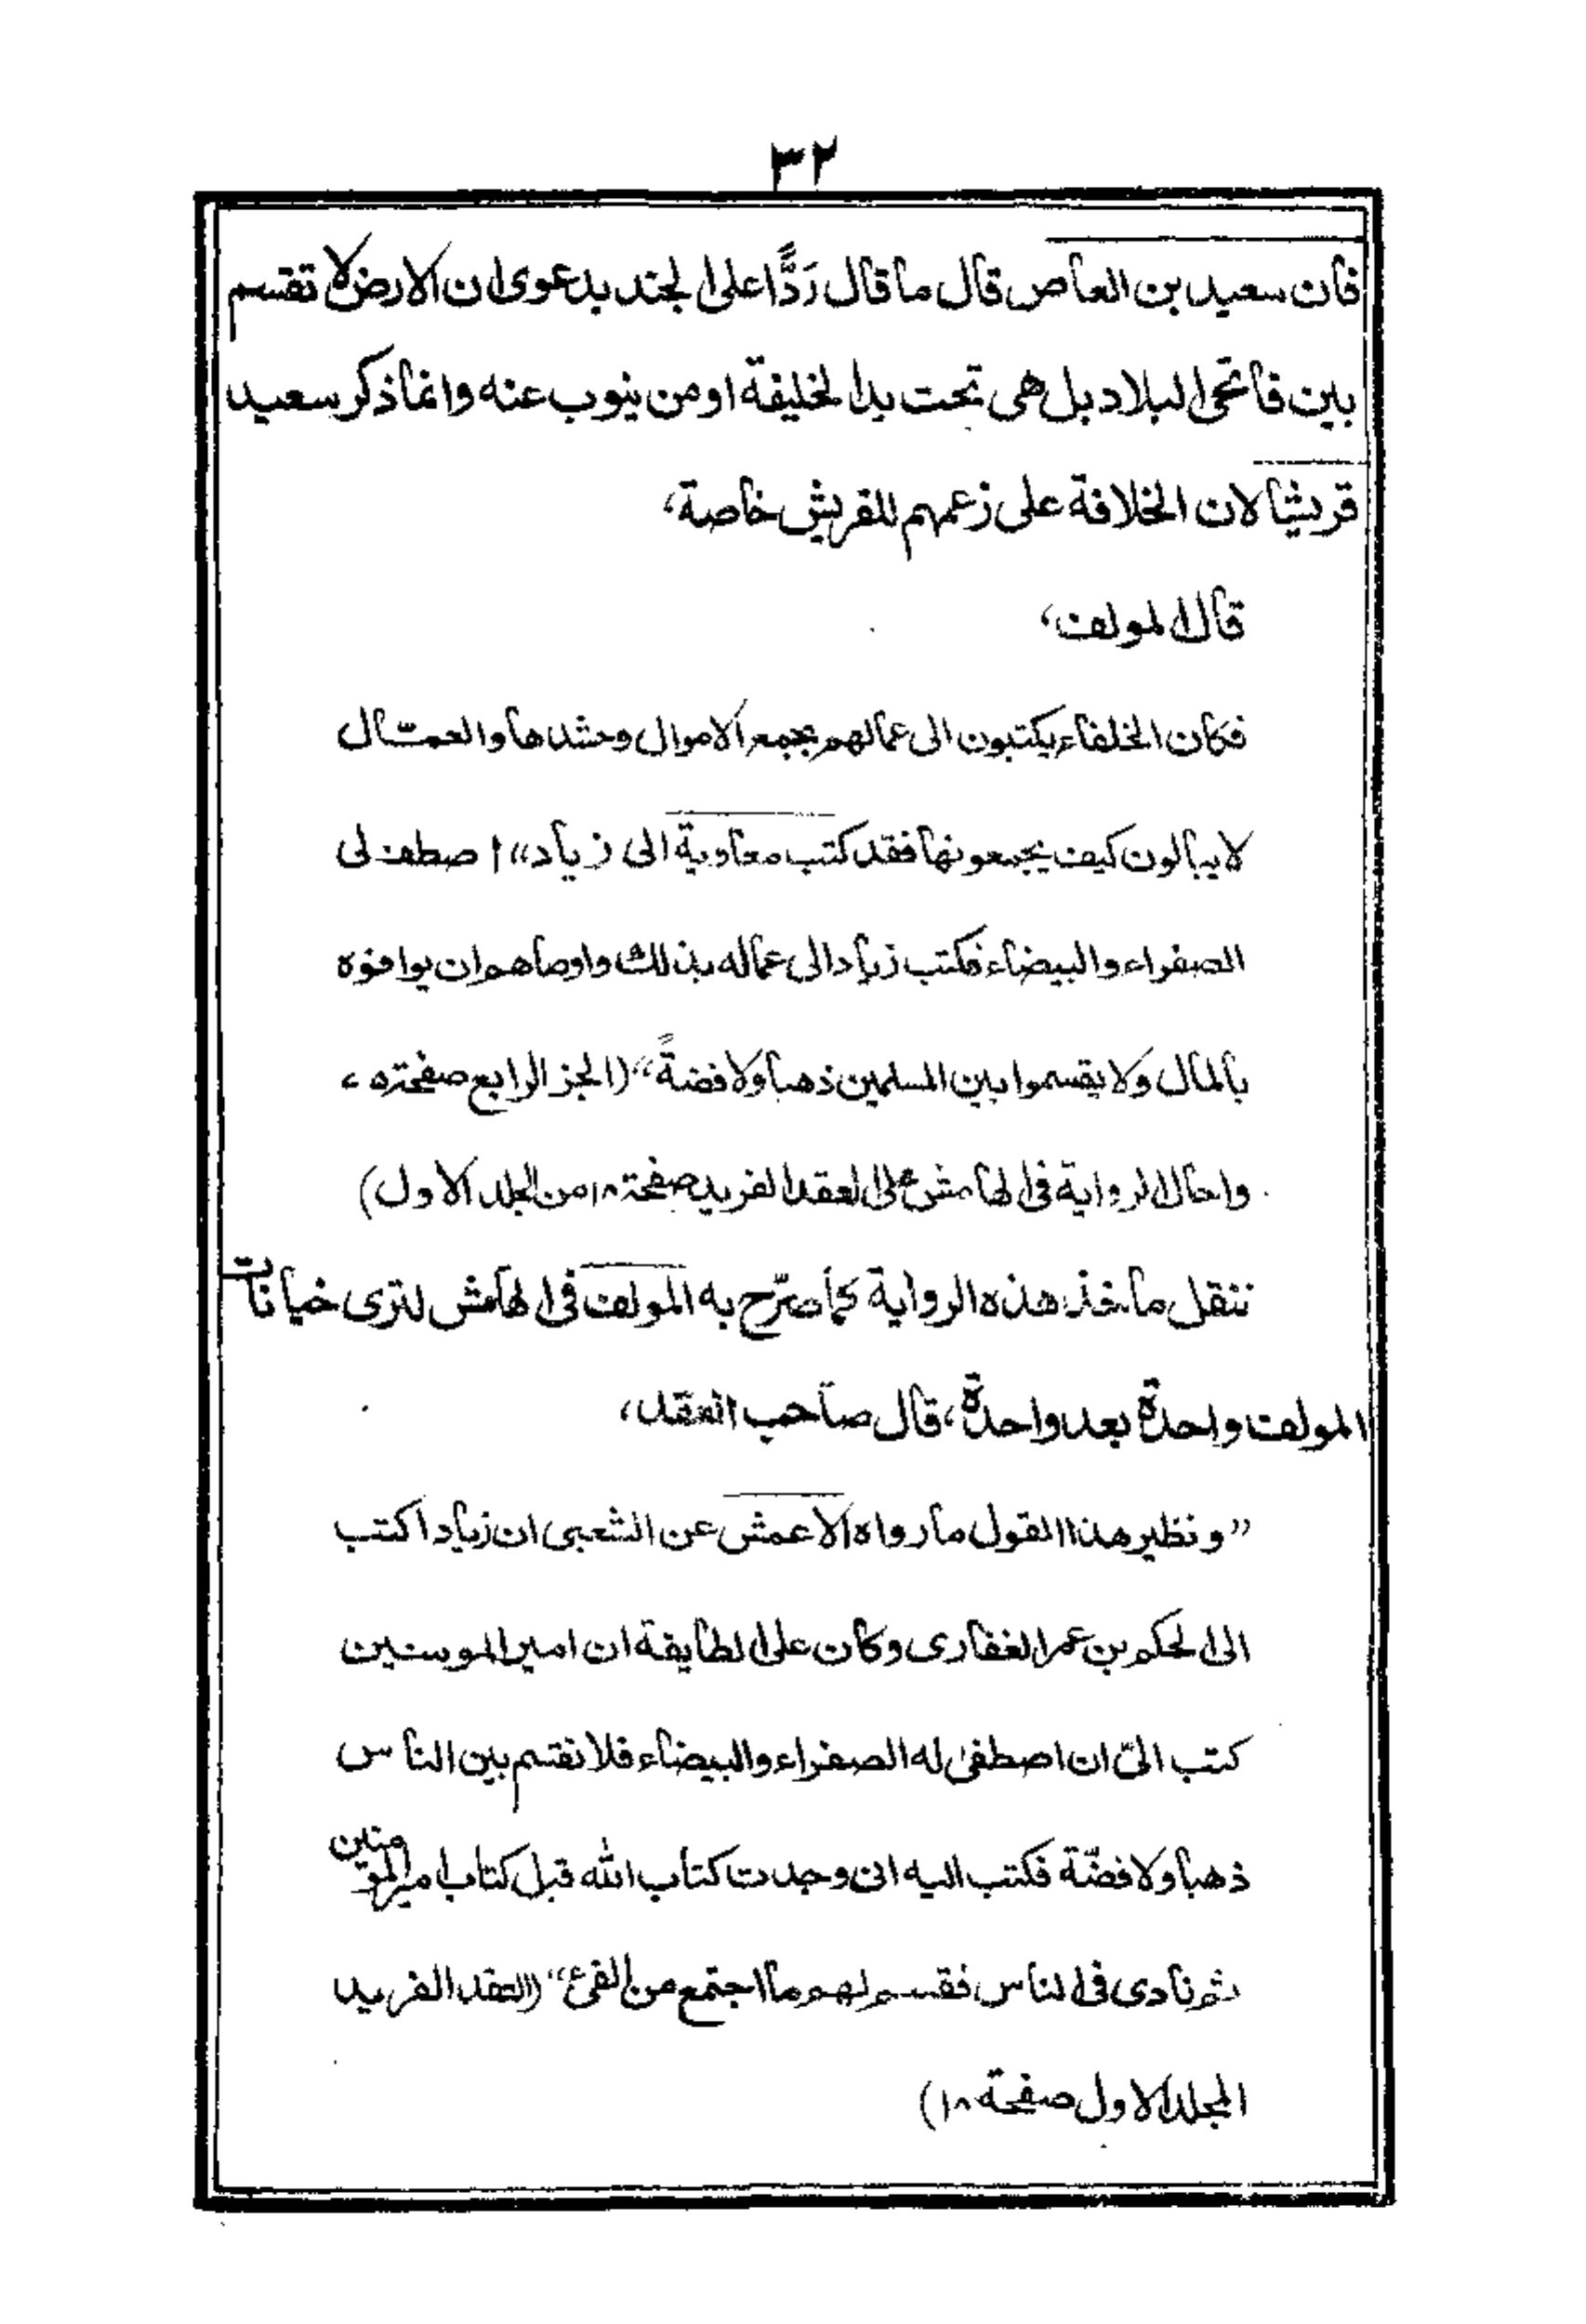 ٣٢
فان سعيد بن العاص قال ما قال رَدًّا على الجند بدعوى ان الارض لا تقسم
بين فاتحى البلاد بل هى تحت يد الخليفة او من ينوب عنه وانما ذكر سعيد
قريشا لان الخلافة على زعمهم للقريش خاصة،
قال المولف،
فكان الخلفاء يكتبون الى عمالهم بجمع الاموال وحشدها والعمّال
لا يبالون كيف يجمعونها فقد كتب معاوية الى زياد» اصطف لى
الصفراء والبيضاء فكتب زياد الى عماله بذلك واوصاهم ان يوافوه
بالمال ولا يقسموا بين المسلمين ذهبا ولا فضةً" (الجز الرابع صفحة
واحال الرواية فى الهامش على العقد الفريد صفحة ١٨ من المجلد الاول)
ننقل ماخذ هذه الرواية كما صرّح به المولف فى الهامش لترى خيانات
المولف واحدة بعد واحدة، قال صاحب العقد،
"ونظير هذا القول ما رواه الاعمش عن الشعبى ان زيادا كتب
الى الحكم بن عمر الغفارى وكان على الطايفة ان امير المومنين
كتب الىّ ان اصطفى له الصفراء والبيضاء فلا تقسم بين الناس
ذهبا ولا فضّة فكتب اليه انى وجدت كتاب الله قبل كتاب امير المومنين
ثم نادى فى الناس فقسم لهم ما اجتمع من الفئ" (العقد الفريد
المجلد الاول صفحة ١٨)